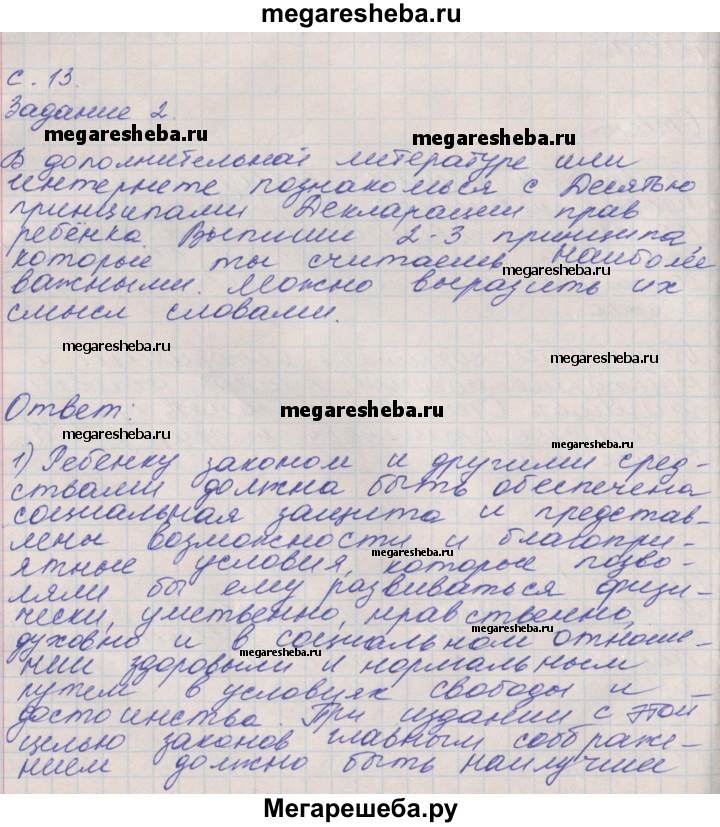 megaresheba.ru
с. 13.
Задание 2.
megaresheba.ru megaresheba.ru
В дополнительной литературе или
интернете познакомься с Десятью
принципами Декларации прав
ребёнка. Выпиши 2-3 принципа,
которые ты считаешь наиболее
megaresheba.ru
важными. Можно выразить их
смысл словами.
megaresheba.ru megaresheba.ru
Ответ:
megaresheba.ru
megaresheba.ru megaresheba.ru
1) Ребенку законом и другими сред-
ствами должна быть обеспечена
социальная защита и представ-
лены возможности и благопри-
megaresheba.ru
ятные условия, которые позво-
ляли бы ему развиваться физи-
чески, умственно, нравственно,
megaresheba.ru
духовно и в социальном отноше-
megaresheba.ru
нии здоровым и нормальным
путем в условиях свободы и
достоинства. При издании с этой
целью законов главным соображе-
нием должно быть наилучшее
Мегарешеба.ру